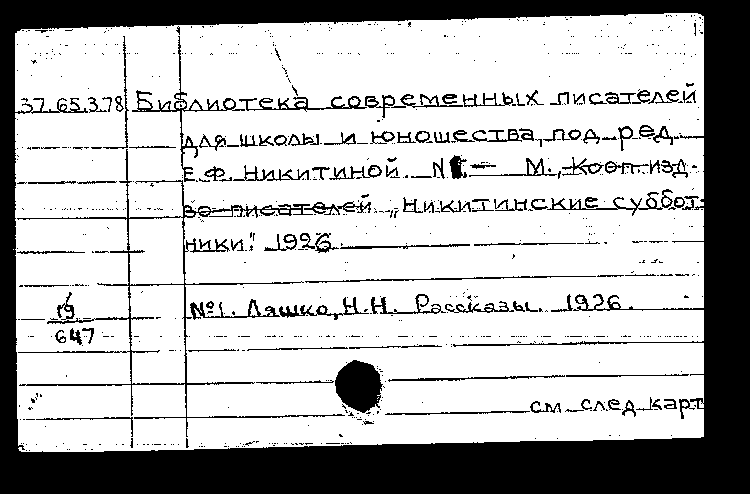 37.65.3.78 Библиотека современных писателей
для школы и юношества, под ред.
Е.Ф. Никитиной. N1.— М., Кооп. изд-
во писателей „Никитинские суббот-
ники". 1926
19
647
№1. Ляшко, Н.Н. Рассказы. 1926.
см. след. карт